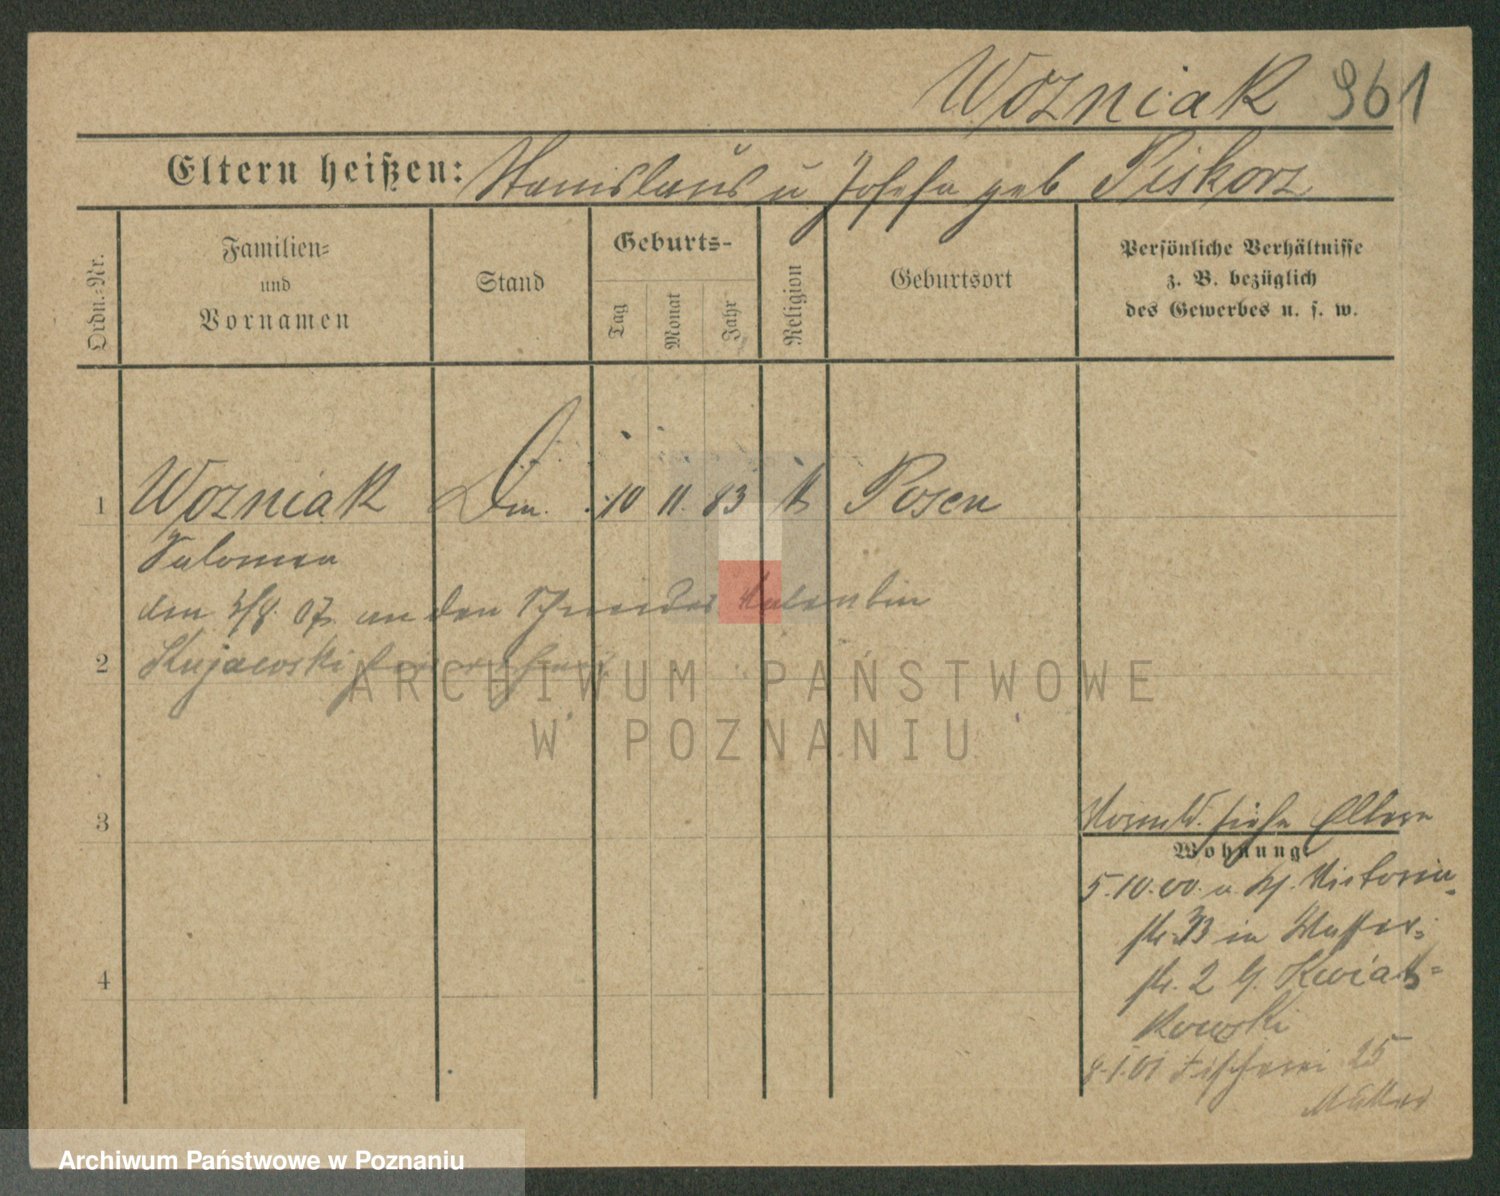 Wozniak 961
Eltern heißen: Stanislaus u Josefa geb Piskorz
Ordn.-Nr.
Familien-
und
Vornamen
Stand
Geburts-
Tag
Monat
Jahr
Religion
Geburtsort
Persönliche Verhältnisse
z. B. bezüglich
des Gewerbes u. s. w.
1 Wozniak 10 11. 83 k Posen
Salomea
den 3/8. 07. an den Schneider Valentin
2 Kujawski
3
4
siehe Eltern
Wohnung:
5.10.00. Victoria-
str. 33 in Wasser-
str. 2 b. Kwiat-
kowski
8.1.01 Fischerei 25
Mutter
ARCHIWUM PAŃSTWOWE
W POZNANIU
Archiwum Państwowe w Poznaniu